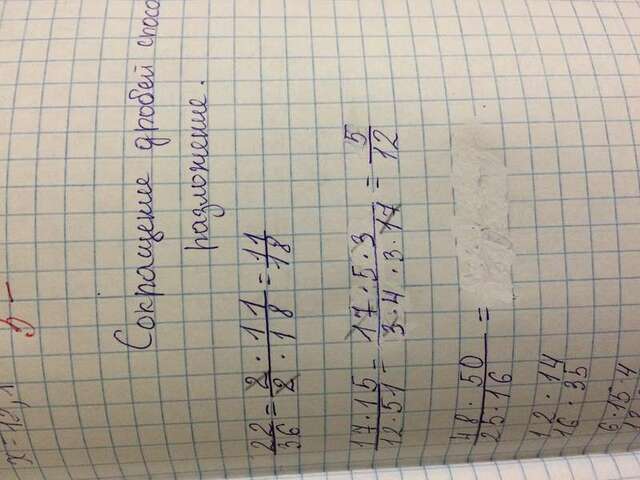 x = 13,1
5 -
Сокращение дробей спосо
разложение.
22/36 = 2 · 11/2 · 18 = 11/18
17 · 15/12 · 51 = 17 · 5 · 3/3 · 4 · 3 · 17 = 5/12
48 · 50/25 · 16 =
12 · 14/16 · 35
6 · 15 · 4